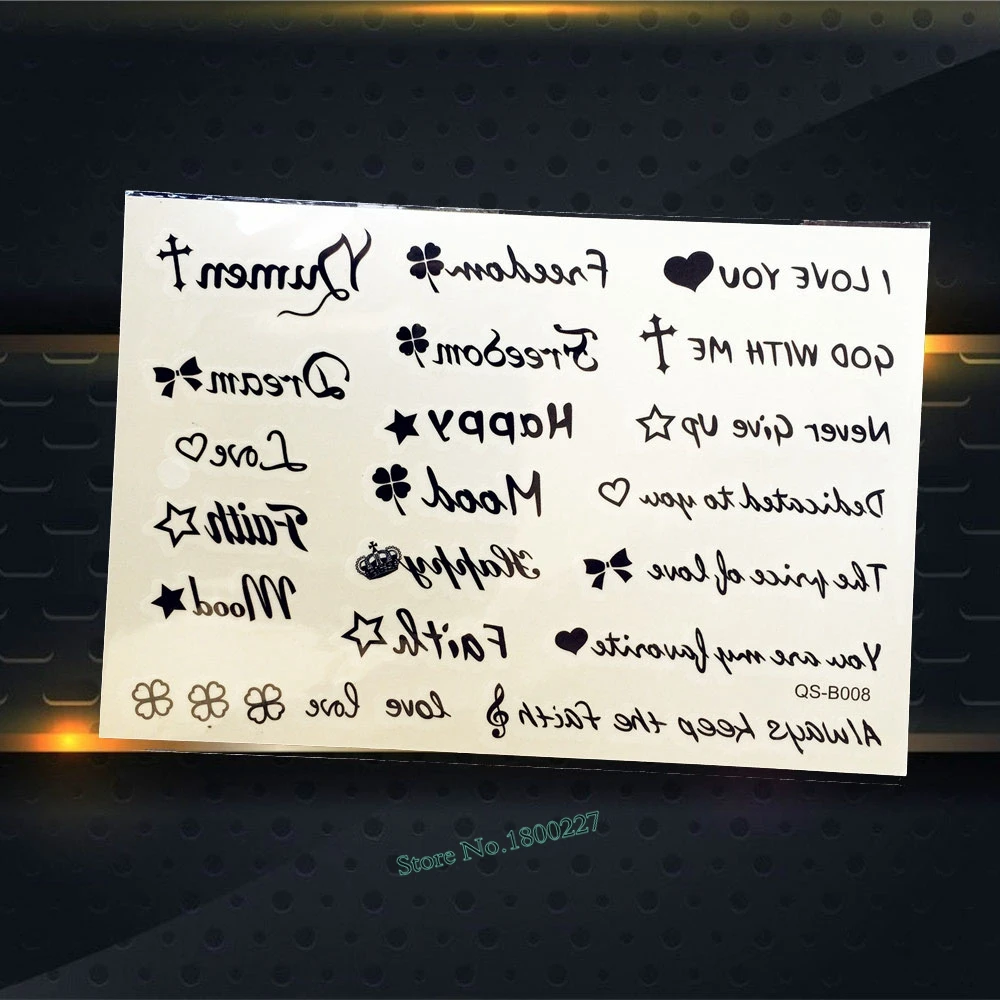 I LOVE YOU
GOD WITH ME
Never Give Up
Dedicated to you
The price of love
You are my favorite
QS-B008
Always keep the faith
love love
Freedom
Freedom
Happy
Mood
Happy
Faith
Dream
Love
Faith
Mood
Store No.1800227